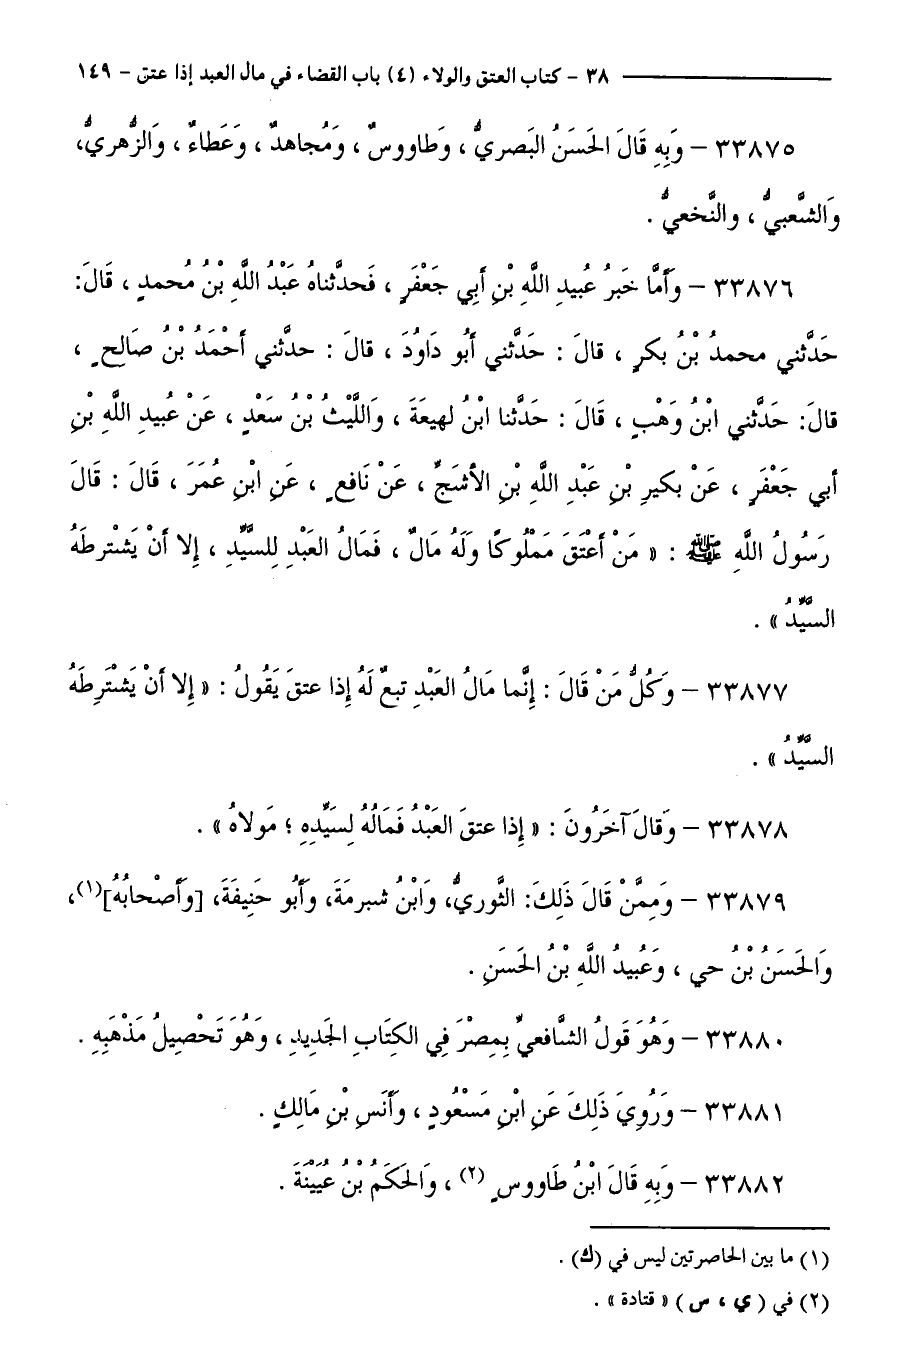 ٣٨ – كتاب العتق والولاء (٤) باب القضاء في مال العبد إذا عتق – ١٤٩
٣٣٨٧٥ – وَبِهِ قَالَ الحَسَنُ البَصريُّ ، وَطاووسٌ ، وَمُجاهدٌ ، وَعَطاءٌ ، وَالزُّهريُّ،
وَالشَّعبيُّ ، والنَّخعيُّ .
٣٣٨٧٦ – وَأَمَّا خَبرُ عُبيدِ اللَّهِ بْنِ أَبِي جَعْفَرٍ ، فَحدثَّناهُ عَبْدُ اللَّهِ بْنُ مُحمدٍ ، قَالَ:
حَدَّثني محمدُ بْنُ بكرٍ ، قالَ : حَدَّثني أَبُو دَاوُدَ ، قالَ : حدثَّني أَحْمَدُ بْنُ صَالِحٍ ،
قالَ: حَدَّثني ابْنُ وَهْبٍ ، قَالَ : حَدَّثنا ابْنُ لهيعَةَ ، وَاللَّيْثُ بْنُ سَعْدٍ ، عَنْ عُبيدِ اللَّهِ بْنِ
أبي جَعْفَرٍ ، عَنْ بكيرِ بْنِ عَبْدِ اللَّهِ بْنِ الأشَجِّ ، عَنْ نَافعٍ ، عَنِ ابْنِ عُمَرَ ، قَالَ : قَالَ
رَسُولُ اللَّهِ ﷺ : « مَنْ أَعْتَقَ مَمْلُوكًا وَلَهُ مَالٌ ، فَمَالُ العَبْدِ لِلسَّيِّدِ ، إِلا أَنْ يَشْترِطَهُ
السَّيِّدُ » .
٣٣٨٧٧ – وَكُلُّ مَنْ قَالَ : إِنَّما مَالُ العَبْدِ تبعٌ لَهُ إِذا عتقَ يَقُولُ : « إِلا أَنْ يَشْتَرِطَهُ
السَّيِّدُ » .
٣٣٨٧٨ – وَقالَ آخَرُونَ : « إِذا عتقَ العَبْدُ فَمَالُهُ لِسَيِّدِهِ ؛ مَولاهُ » .
٣٣٨٧٩ – وَمِمَّنْ قَالَ ذَلِكَ: الثَّوريُّ، وَابْنُ شبرمةَ، وَأَبُو حَنِيفَةَ، [وَأَصْحابُهُ](١)،
وَالحَسَنُ بْنُ حي ، وَعُبيدُ اللَّهِ بْنُ الحَسَنِ .
٣٣٨٨٠ – وَهُوَ قَولُ الشَّافعيِّ بِمِصْرَ فِي الكِتَابِ الجَدِيدِ ، وَهُوَ تَحْصِيلُ مَذْهَبِهِ .
٣٣٨٨١ – وَرُوِيَ ذَلِكَ عَنِ ابْنِ مَسْعُودٍ ، وَأَنَسِ بْنِ مَالِكٍ .
٣٣٨٨٢ – وَبِهِ قَالَ ابْنُ طَاووسٍ (٢) ، وَالحَكَمُ بْنُ عُيَيْنَةَ .
(١) ما بين الحاصرتين ليس في (ك) .
(٢) في ( ي ، س ) « قتادة » .